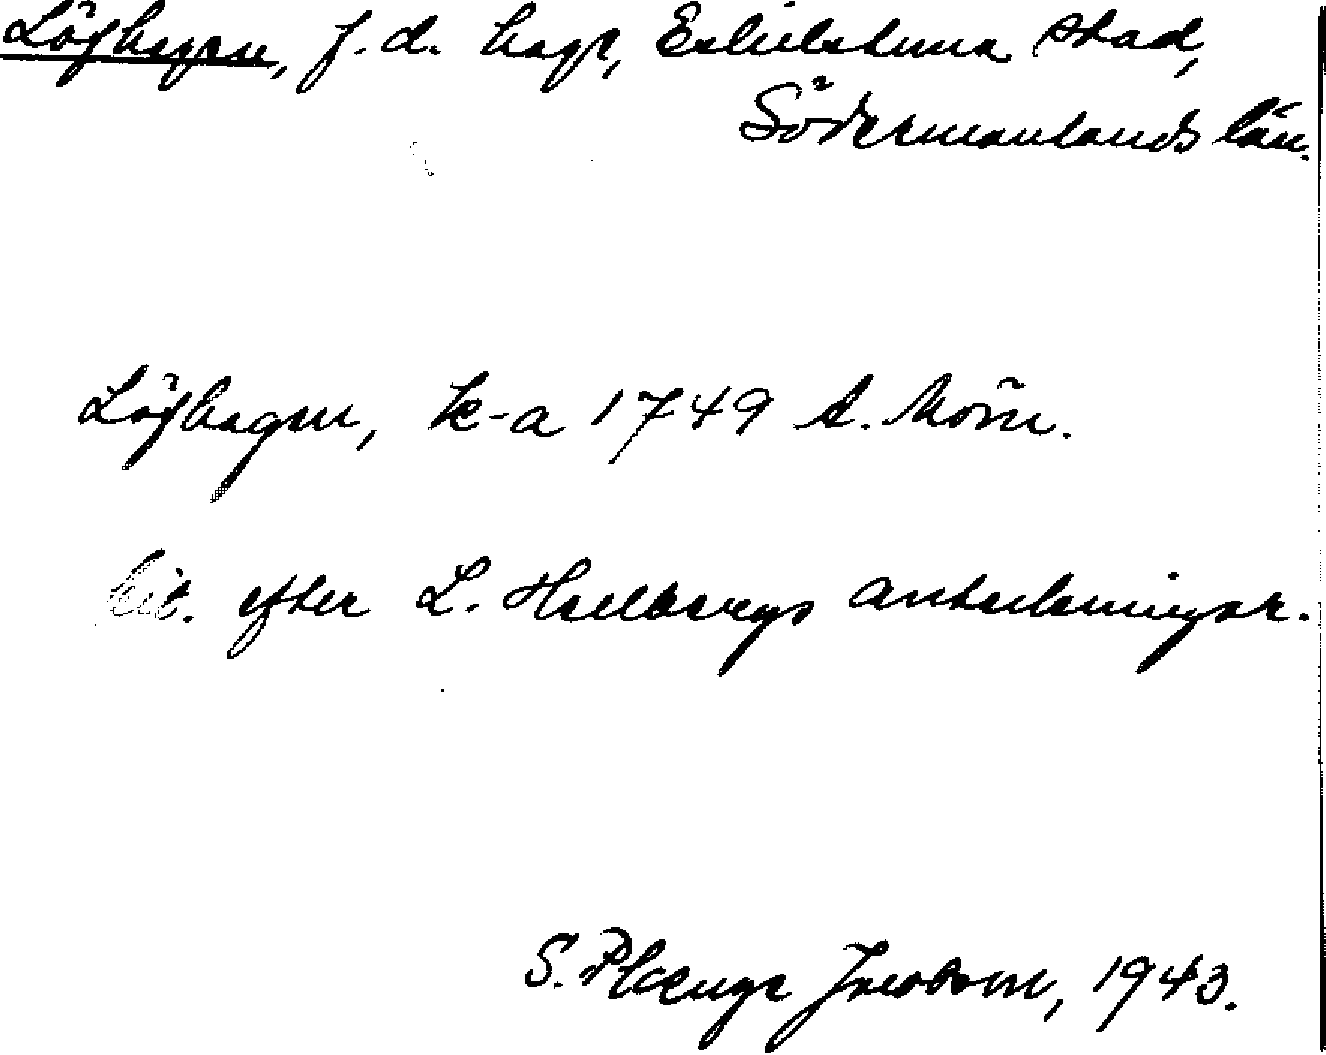 Löfhagen, f.d. hage, Eskilstuna stad,
Södermanlands län.
Löfhagen, k-a 1749 A. Mörn.
Cit. efter L. Hellbergs anteckningar.
S. Plaenge Jacobson, 1943.